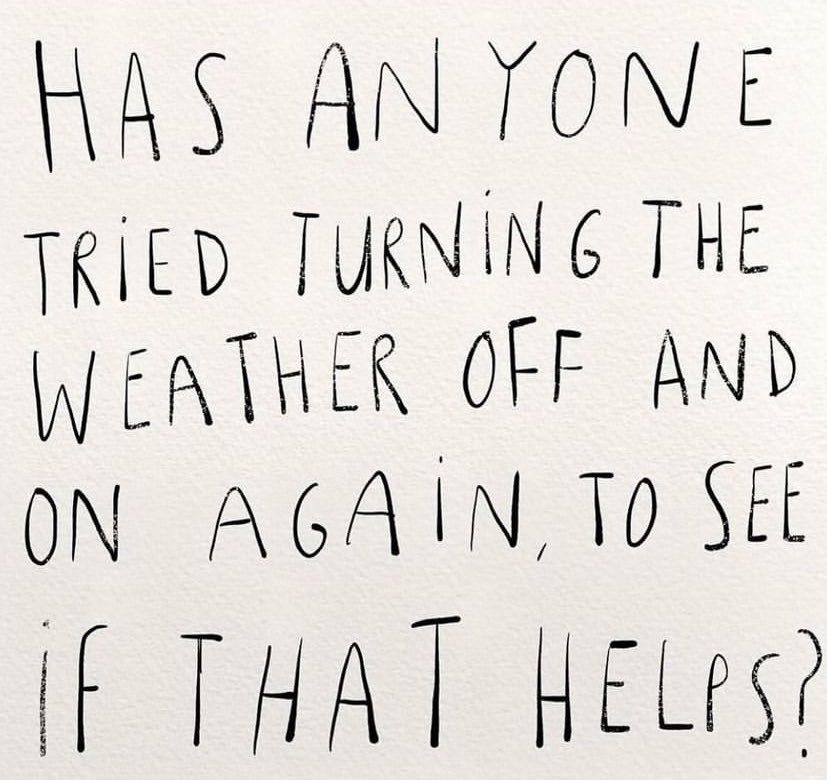 HAS ANYONE
TRiED TURNiNG THE
WEATHER OFF AND
ON AGAiN, TO SEE
iF THAT HELPS?